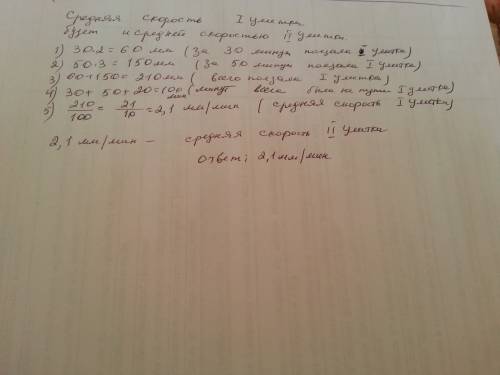 Средняя скорость I улитки
будет и средней скоростью II улитки.
1) 30·2 = 60 мм (за 30 минут поезала I улитка)
2) 50·3 = 150 мм (за 50 минут поезала I улитка)
3) 60+150 = 210 мм ( всего поезала I улитка)
4) 30+ 50+20=100 мин (минут всего была на пути I улитка)
5) 210/100 = 21/10 = 2,1 мм/мин ( средняя скорость I улитки)
2,1 мм/мин – средняя скорость II улитки
Ответ: 2,1 мм/мин